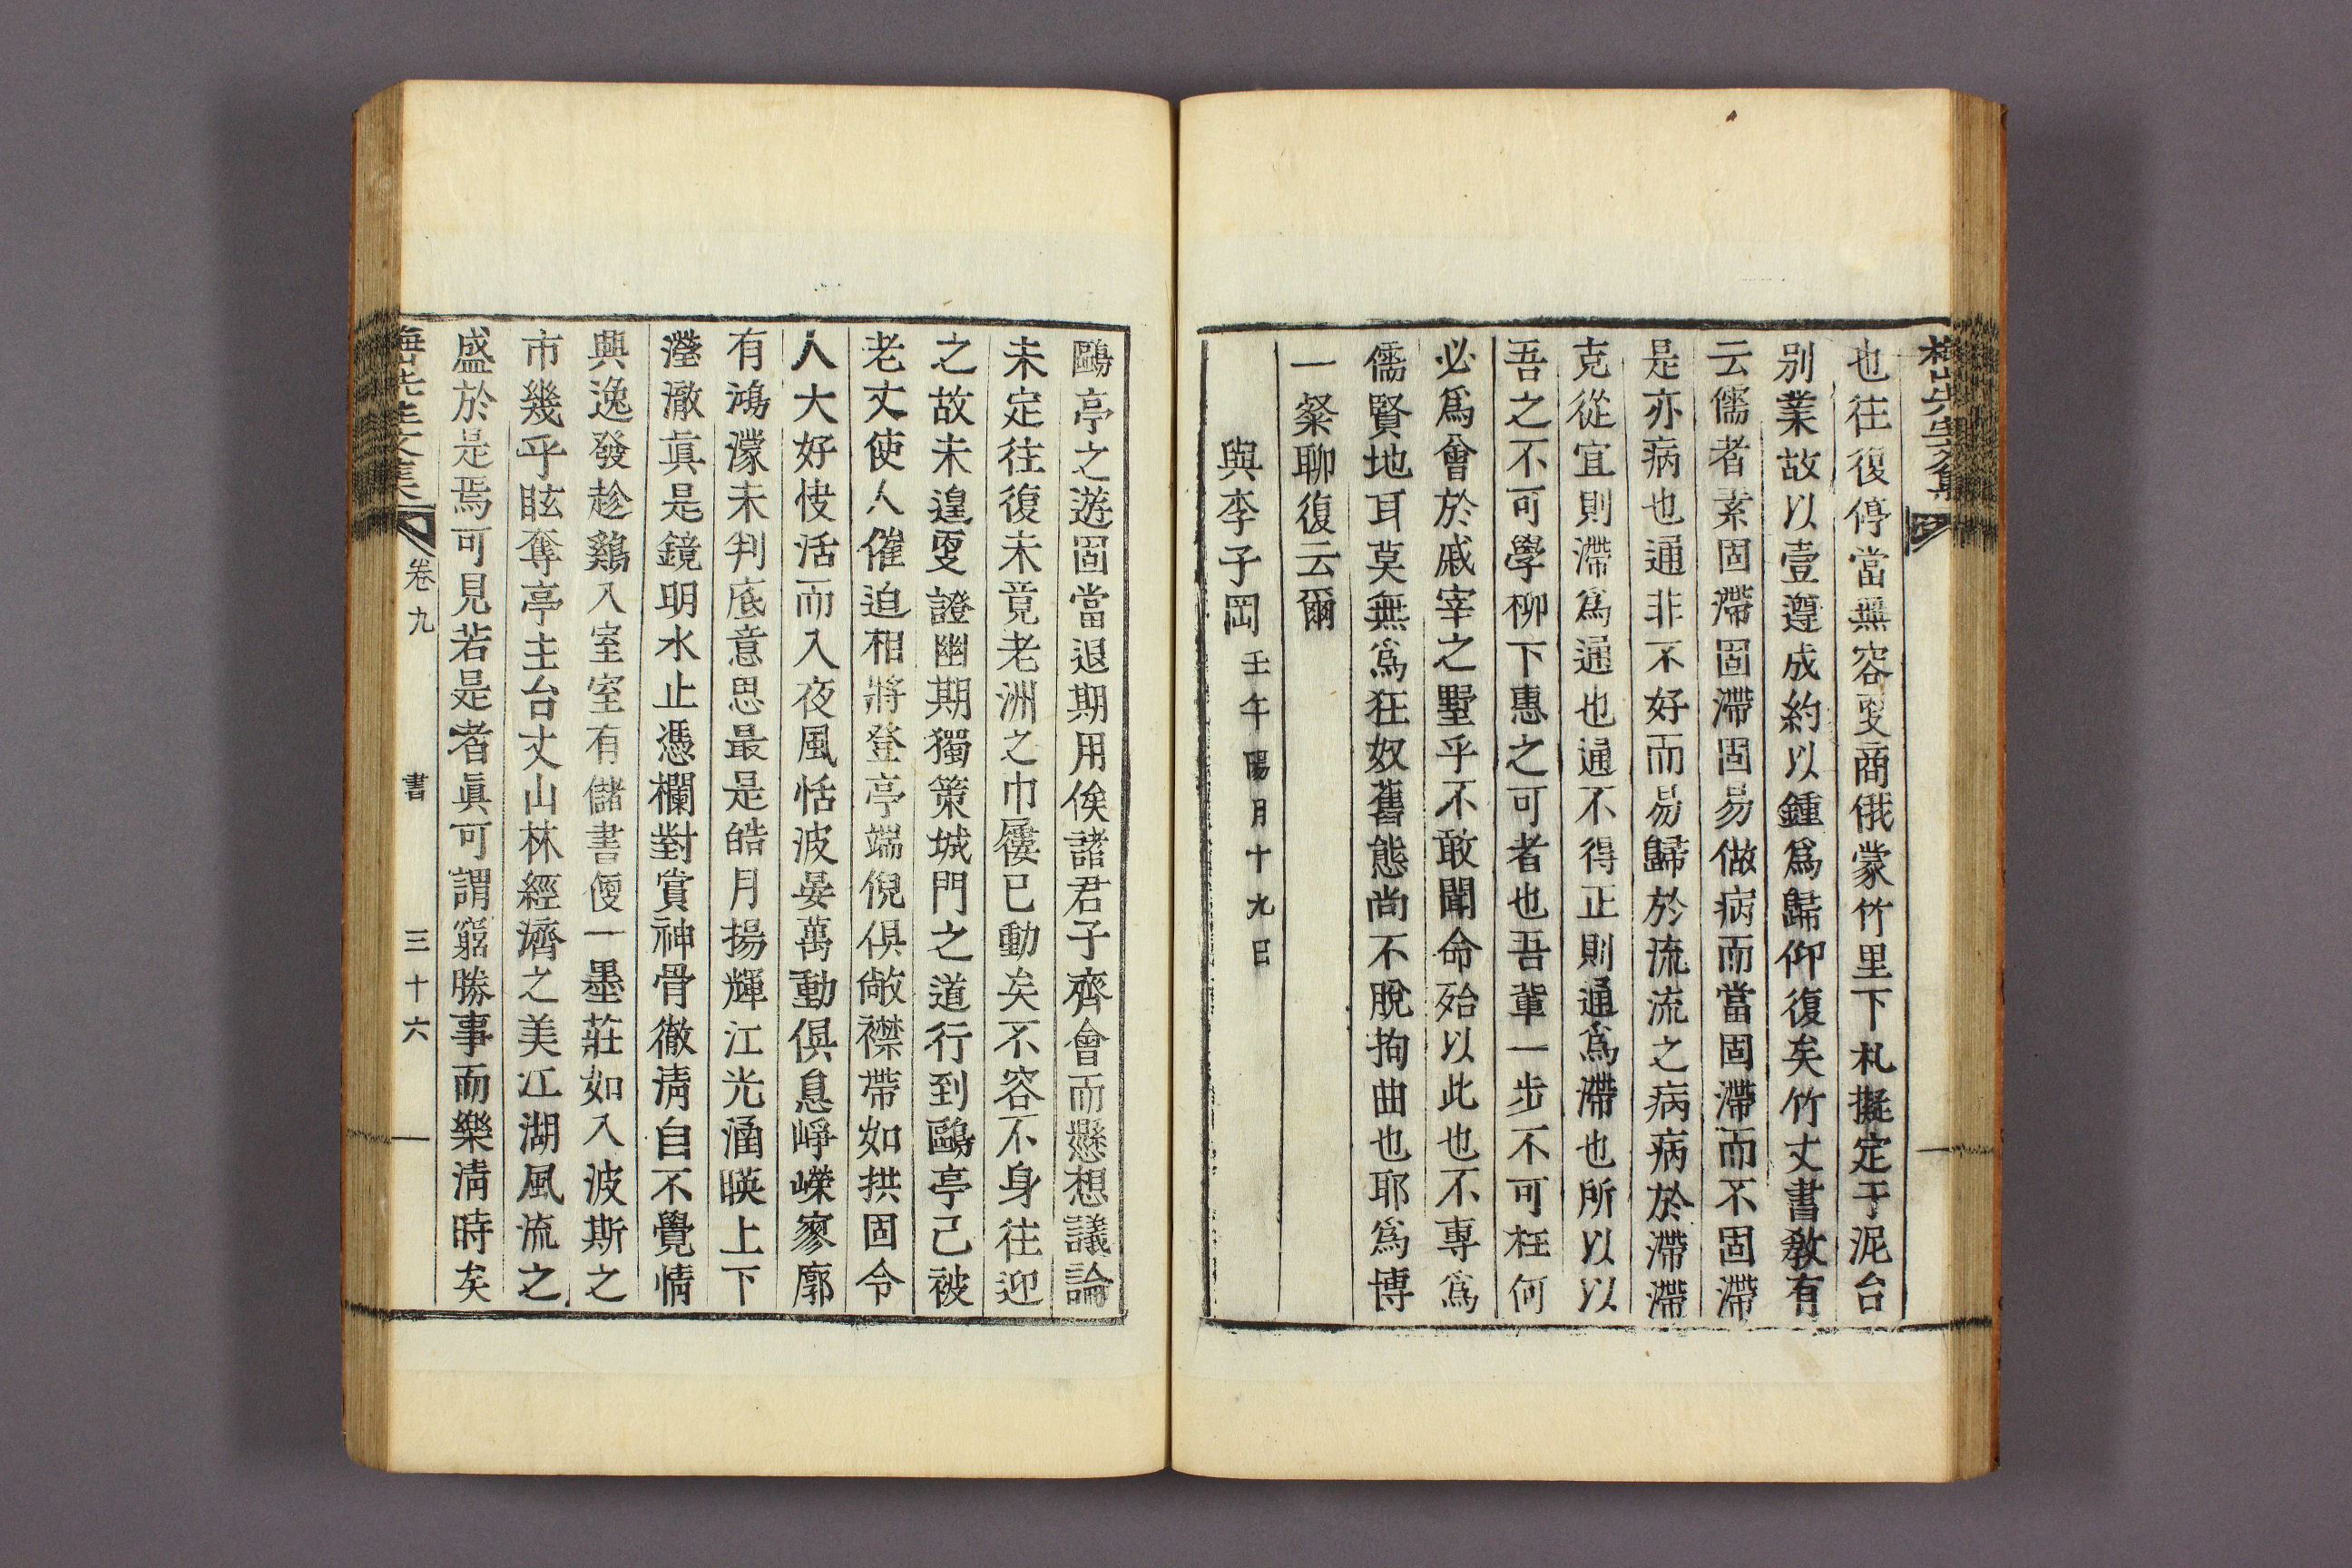 也往復停當無容更商俄蒙竹里下札擬定于泥台
別業故以壹遵成約以鍾爲歸仰復矣竹丈書敎有
云儒者素固滯固滯固易做病而當固滯而不固滯
是亦病也通非不好而易歸於流流之病病於滯滯
克從宜則滯爲通也通不得正則通爲滯也所以以
吾之不可學柳下惠之可者也吾輩一步不可枉何
必爲會於戚宰之墅乎不敢聞命殆以此也不專爲
儒賢地耳莫無爲狂奴舊態尚不脫拘曲也耶爲博
一粲聊復云爾
與李子岡壬午陽月十九日
鷗亭之遊固當退期用俟諸君子齊會而懸想議論
未定往復未竟老洲之巾屨已動矣不容不身往迎
之故未遑更證幽期獨策城門之道行到鷗亭已被
老丈使人催迫相將登亭端倪俱敞襟帶如拱固令
人大好快活而入夜風恬波晏萬動俱息崢嶸寥廓
有鴻濛未判底意思最是皓月揚輝江光涵暎上下
瀅澈眞是鏡明水止憑欄對賞神骨徹淸自不覺情
興逸發趁鷄入室室有儲書便一墨莊如入波斯之
市幾乎眩奪亭主台丈山林經濟之美江湖風流之
盛於是焉可見若是者眞可謂窮勝事而樂淸時矣
梅山先生文集
卷九
書
三十六